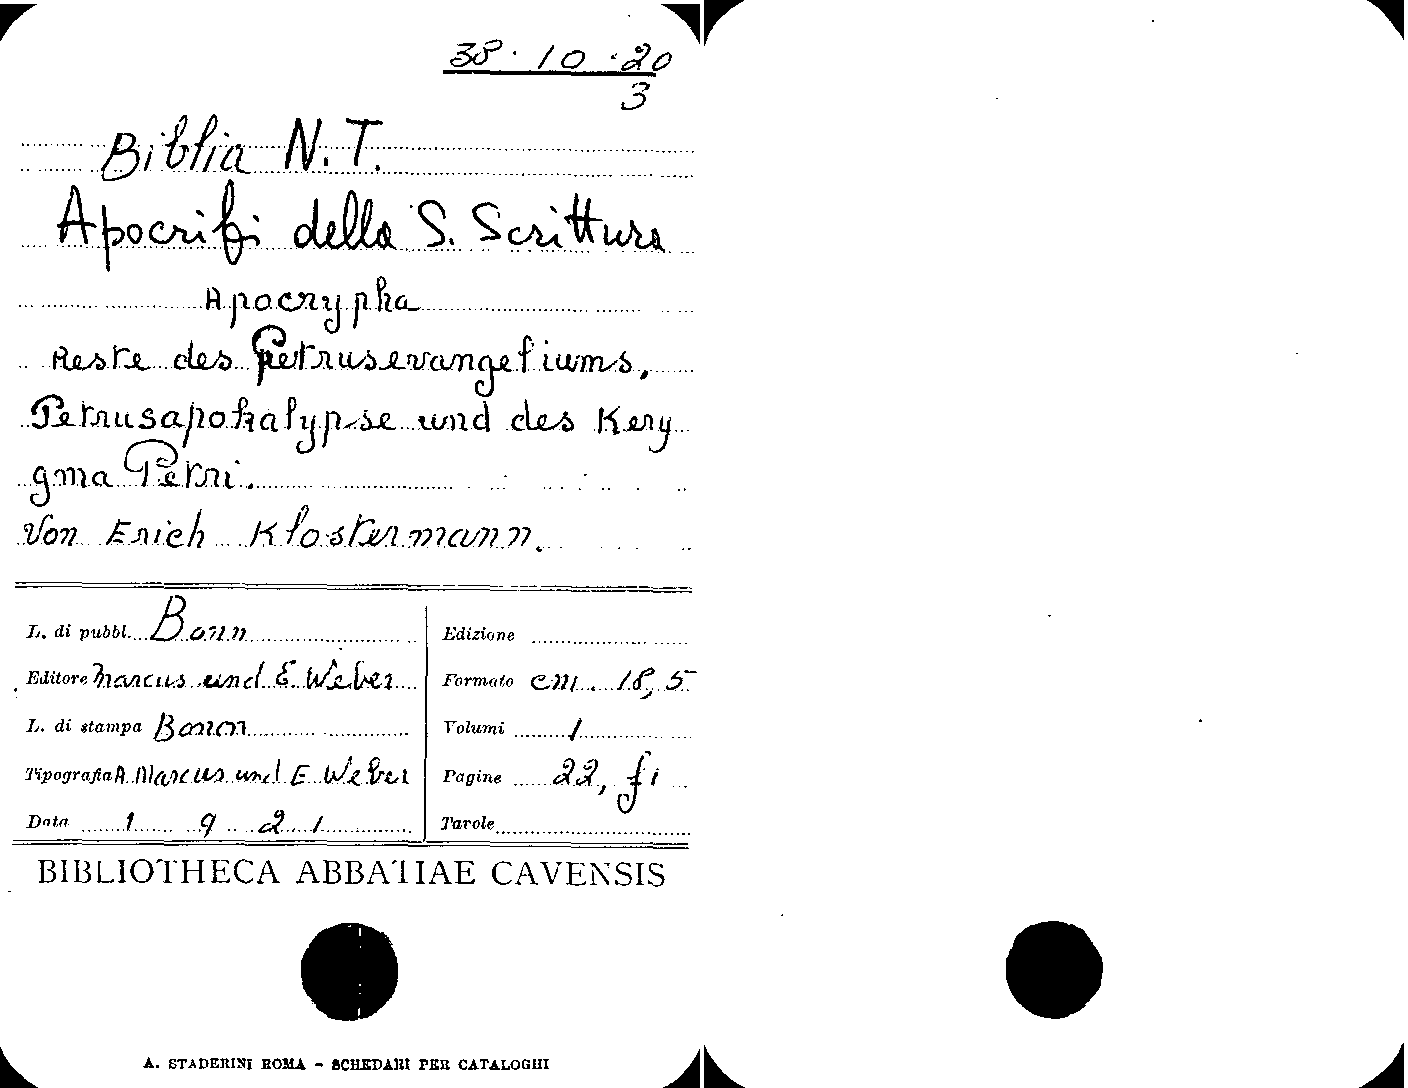 38.10.20
3
Biblia N.T.
Apocrifi della S. Scrittura
Apocrypha
Reste des Petrusevangeliums,
Petrusapokalypse und des Kery
gma Petri.
Von Erich Klostermann.
L. di pubbl. Bonn
Editore Marcus und E Weber
L. di stampa Bonn
Tipografia A Marcus und E Weber
Data 1 9 2 1
Edizione
Formato cm. 18,5
Volumi 1
Pagine 22,
Tavole
BIBLIOTHECA ABBATIAE CAVENSIS
A. STADERINI ROMA - SCHEDARI PER CATALOGHI